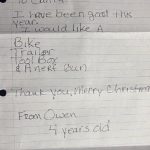 To Santa
I have been good this
year.
I would like A
Bike
Trailer
Tool Box
& A nerf Gun
Thank you, Merry Christmas
From Owen
4 years old